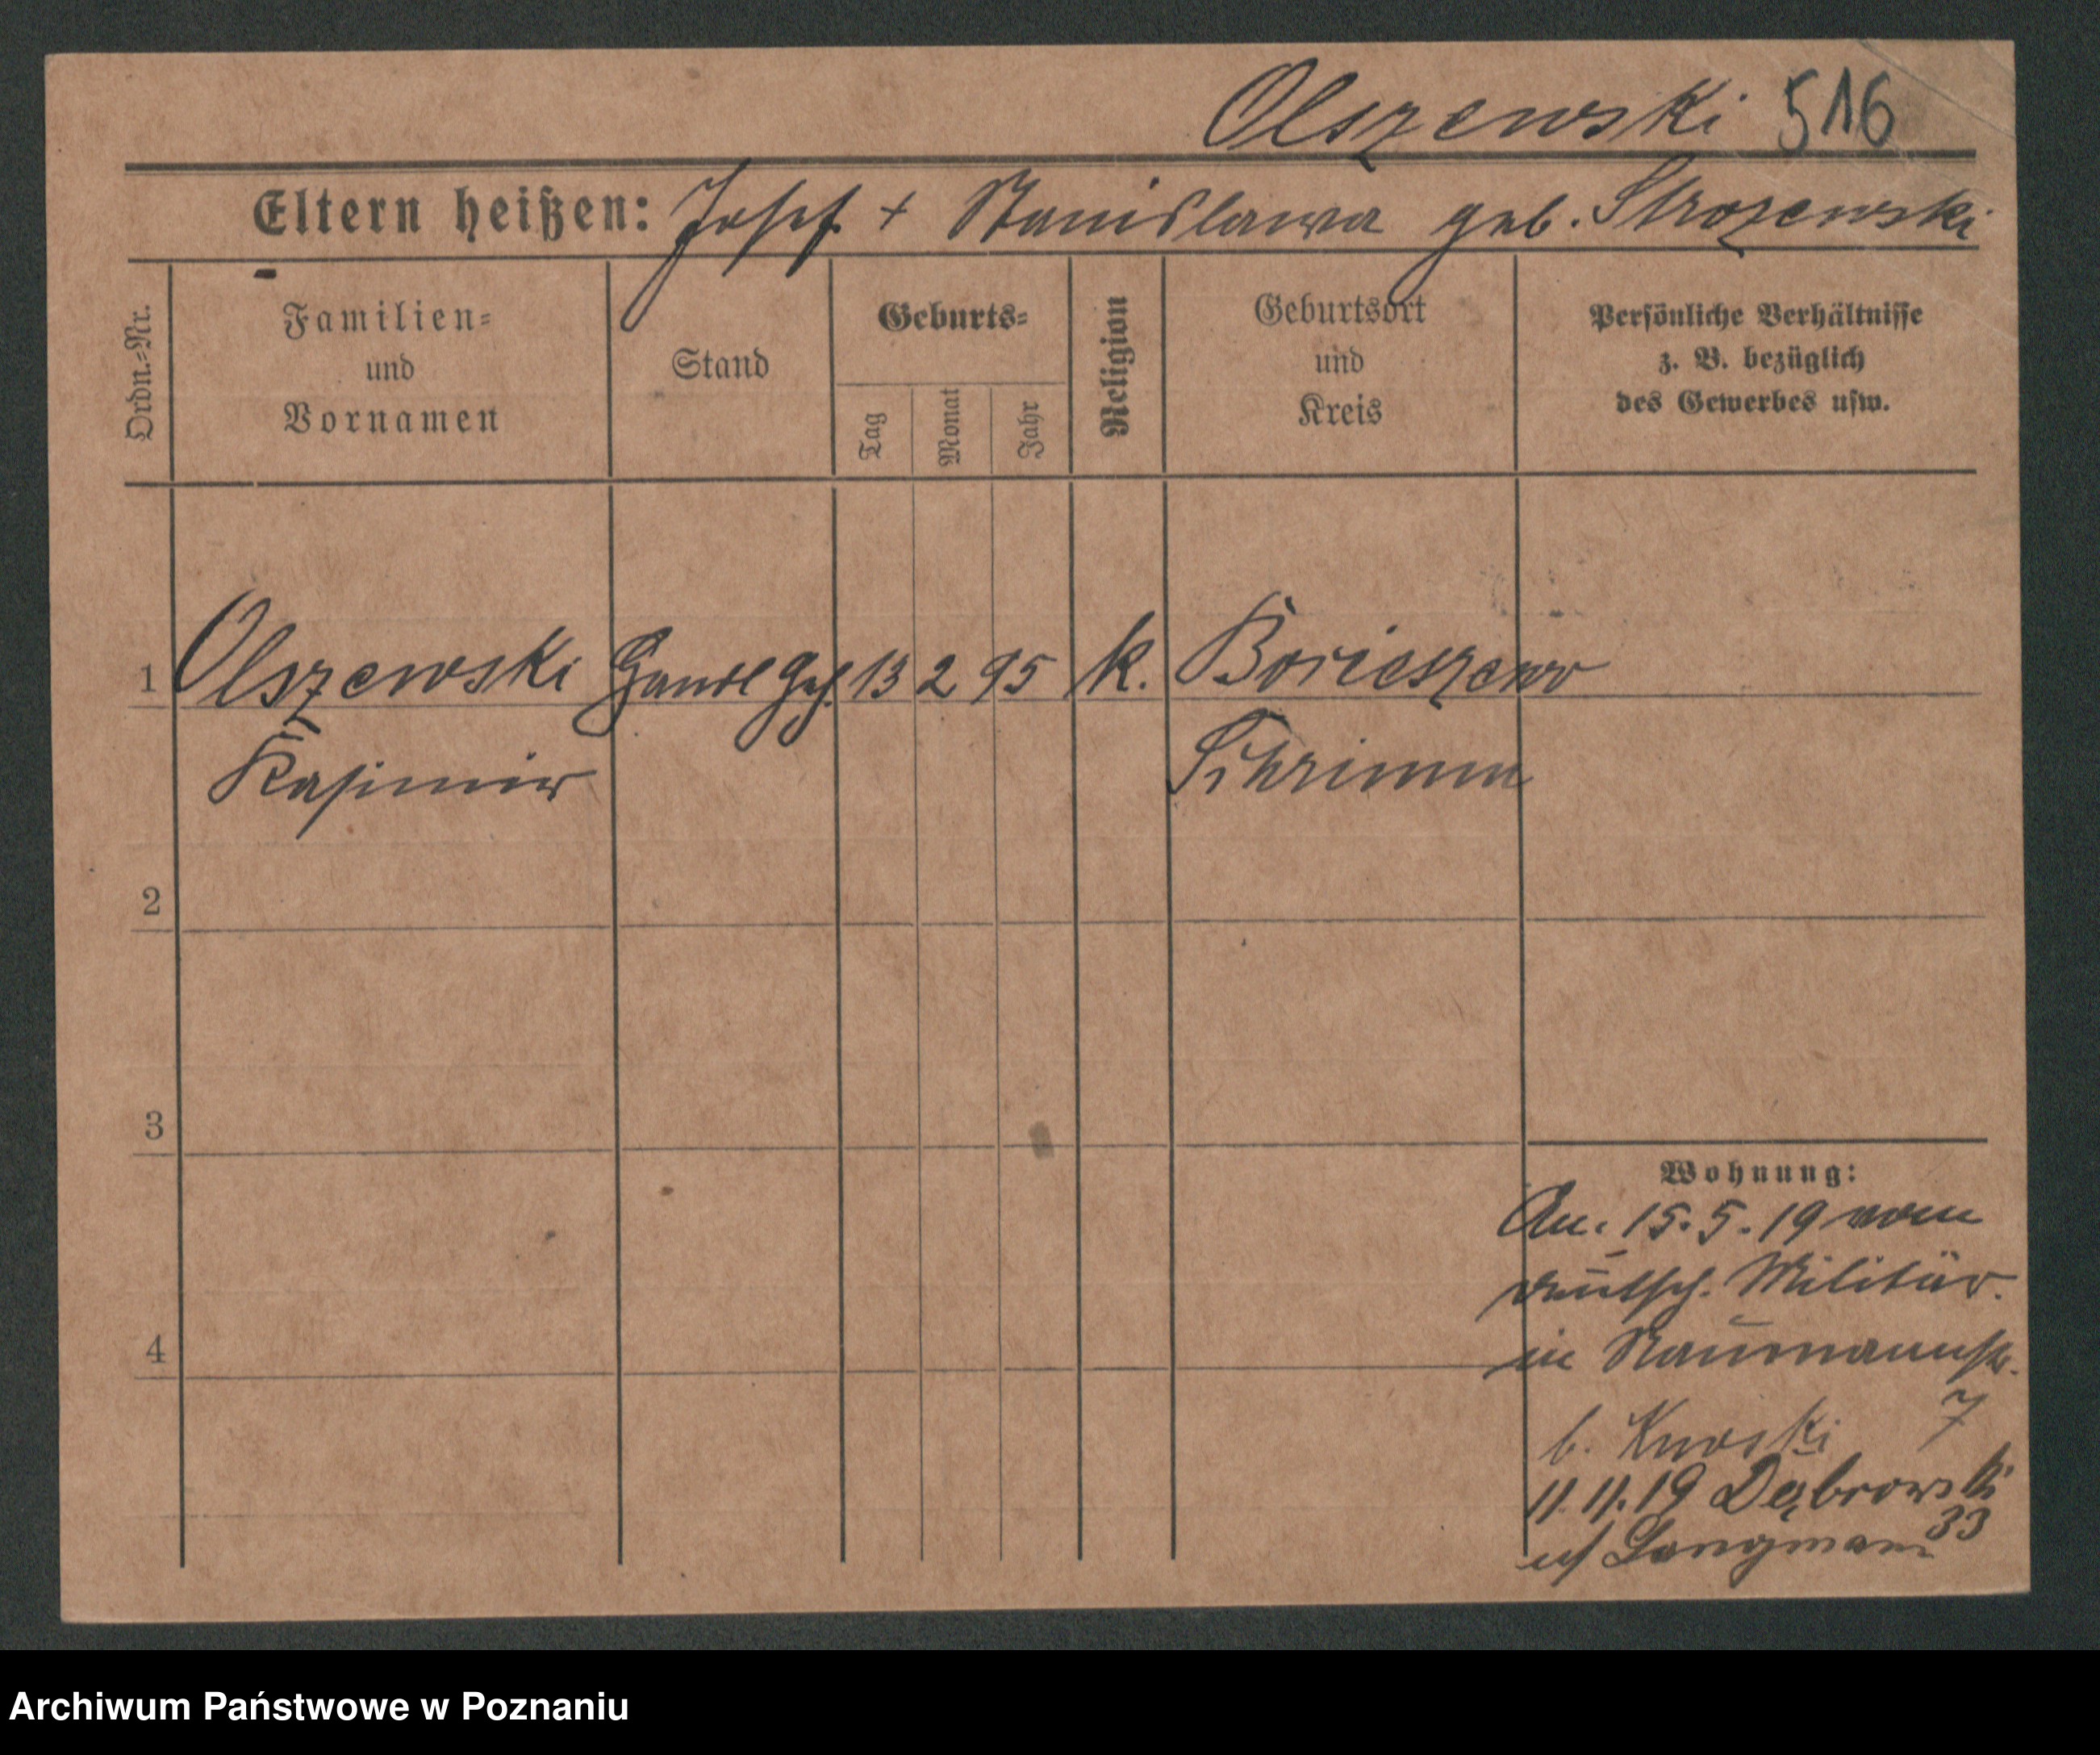 Olszewski 516
Eltern heißen: Josef + Stanislawa geb. Strozewski
Ordn.=Nr.
Familien=
und
Vornamen
Stand
Geburts=
Tag
Monat
Jahr
Religion
Geburtsort
und
Kreis
Persönliche Verhältnisse
z. B. bezüglich
des Gewerbes usw.
1 Olszewski Handl Geh. 13 2 95 k. Borieszewo
Kasimir Schrimm
2
3
4
Wohnung:
An. 15.5.19 vom
deutsch. Militär.
in Naumannstr.
7
b.
11.11.19 Dąbrowski
33
b/ Langmann
Archiwum Państwowe w Poznaniu